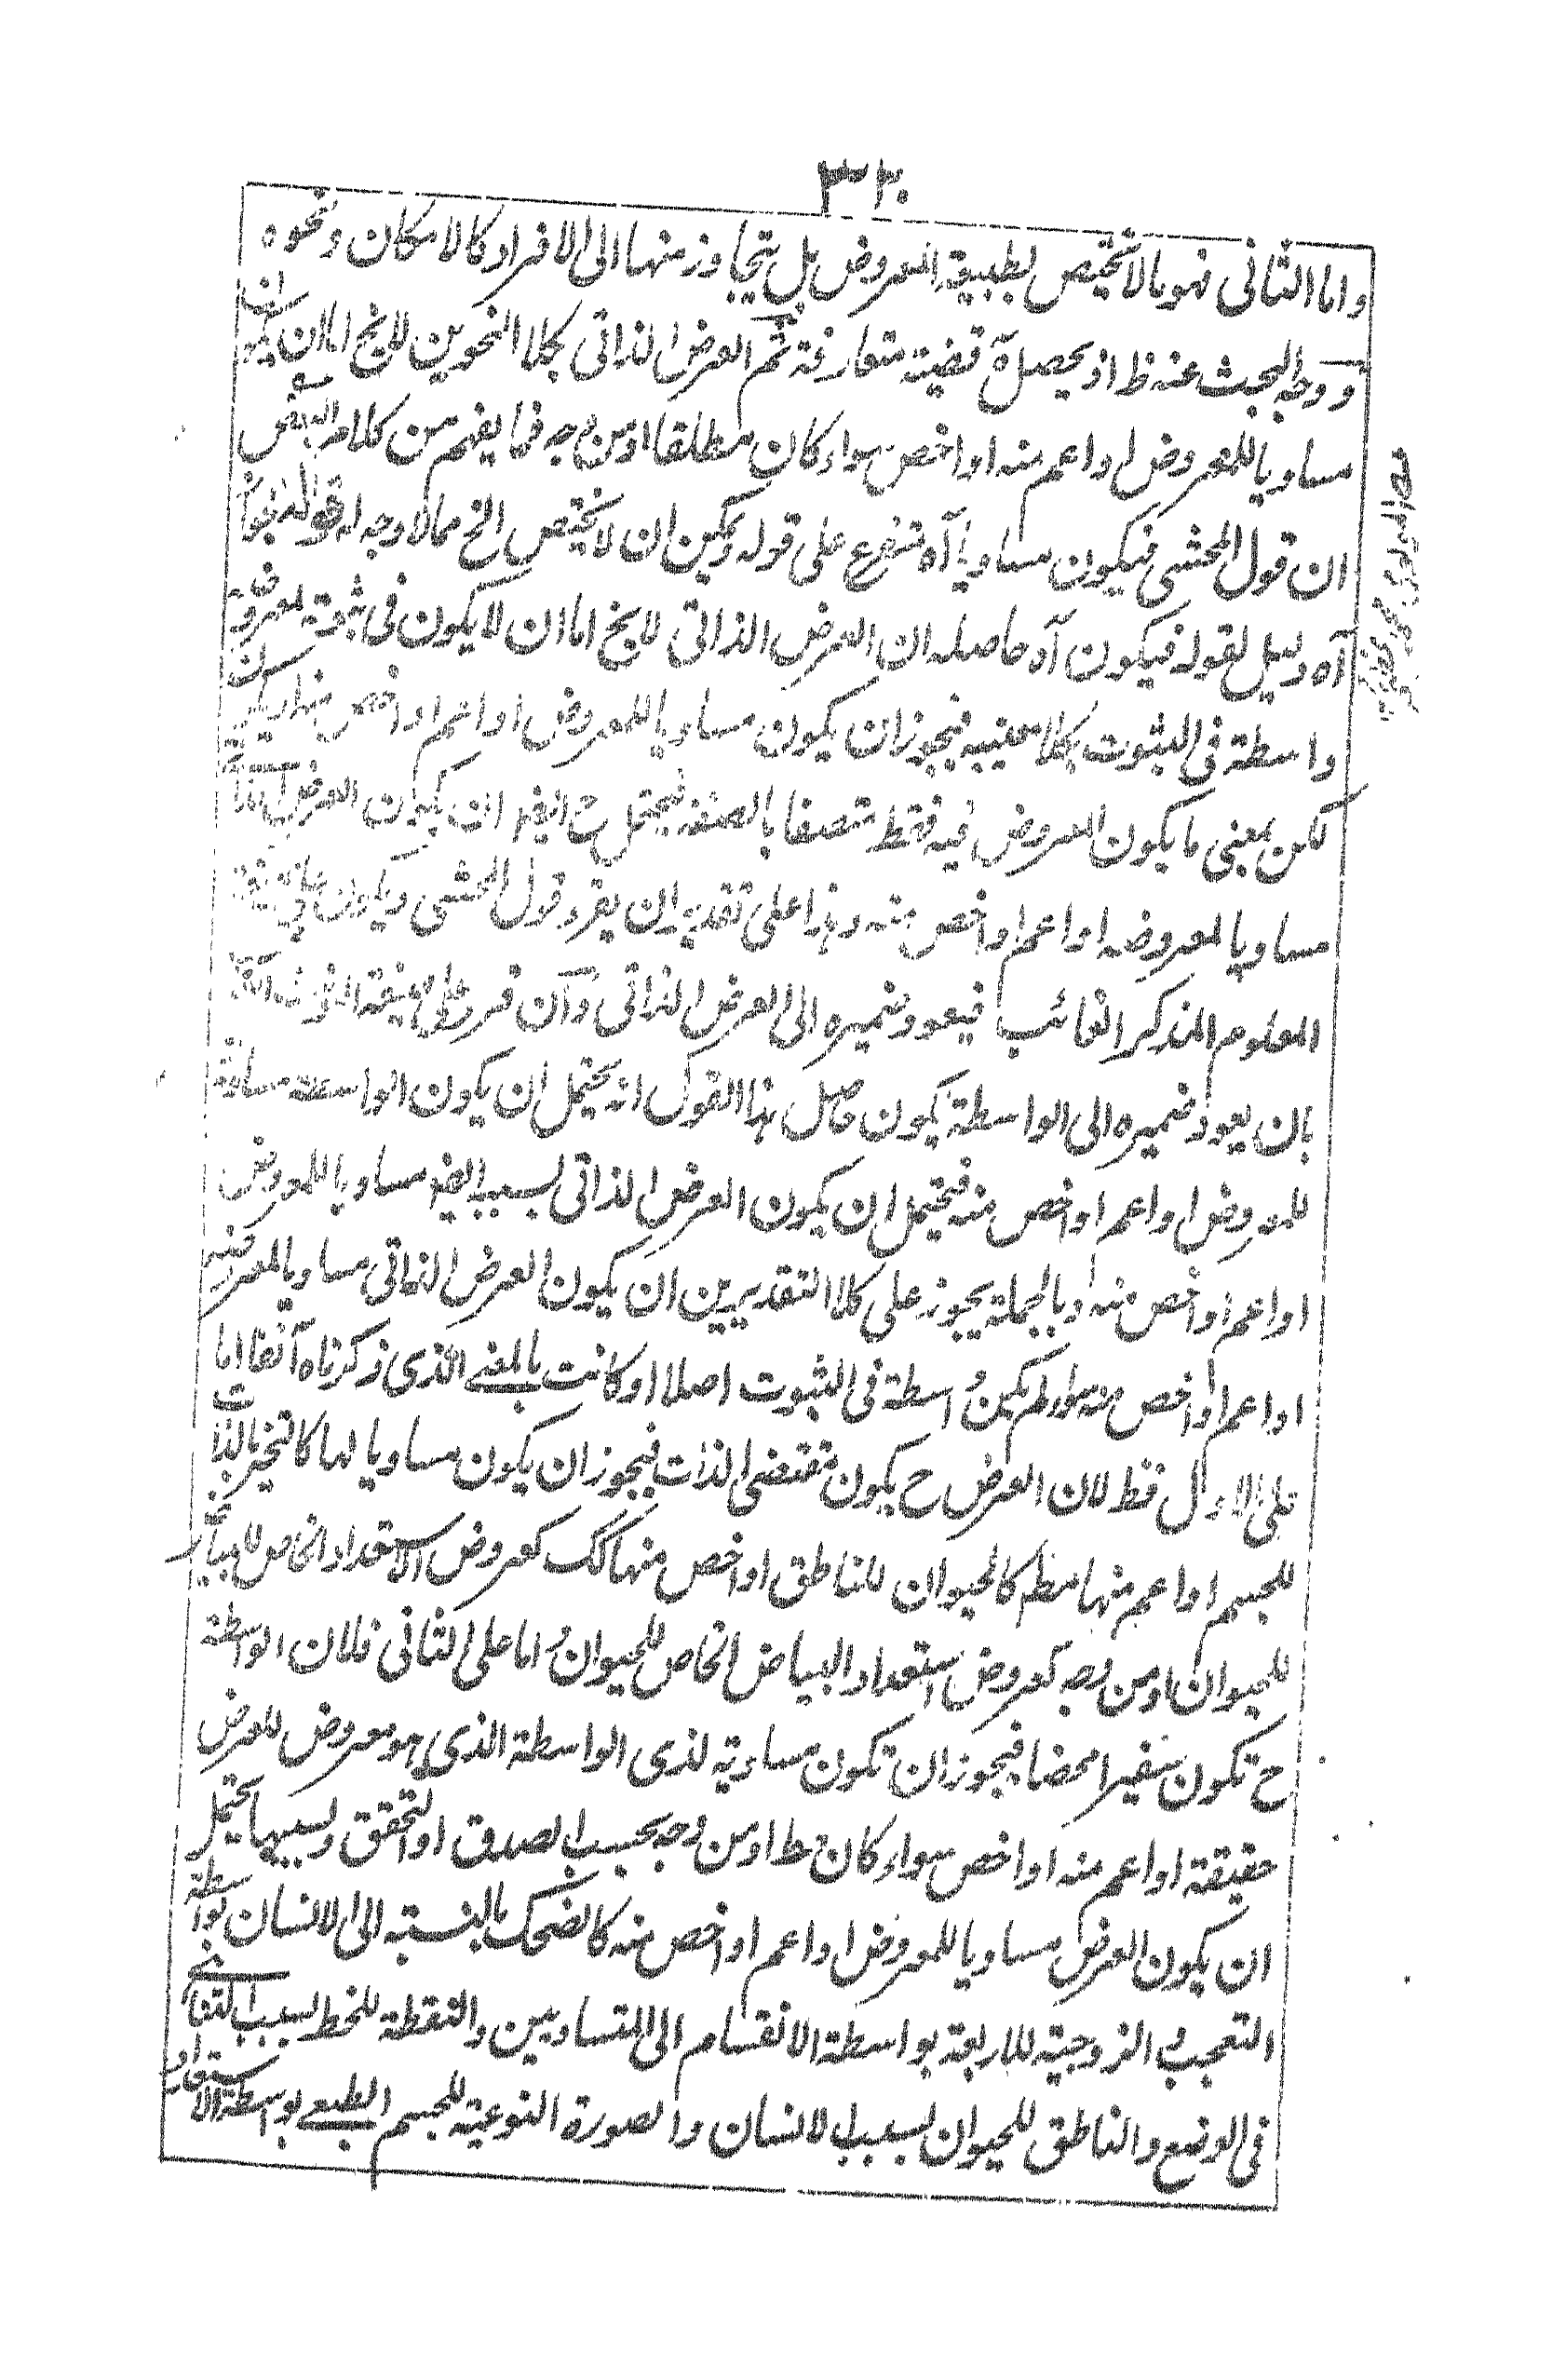 ٣٣٠
واما الثانى فهو ما لا تختص بطبيعة المعروض بل يتجاوز منها الى الافراد كالامكان ونحوه
ووجه البحث عنه ظ اذ يحصل ة قضية متعارفة ثم العرض الذاتى بكلا النحوين لا يخ اما ان يكون
مساويا للمعروض او اعم منه او اخص سواء كان مطلقا او من وجه فما يفهم من كلام البعض
ان قول المحشى فيكون مساويا آه تفرع على قوله ويمكن ان لا يختص الخ مما لا وجه له قوله فيجوز
آه دليل لقوله فيكون آه حاصله ان العرض الذاتى لا يخ اما ان لا يكون فى ثبوته لمعروضه
واسطة فى الثبوت بكلا معنييه فيجوز ان يكون مساويا للمعروض او اعم او اخص منه او يكون
لكن بمعنى ما يكون المعروض فيه فقط متصفا بالصفة فيحتمل ح ايضا ان يكون العرض الذاتى
مساويا لمعروضه او اعم او اخص منه وهذا على تقدير ان يقرء قول المحشى ويكون على صيغة
المعلوم المذكر الغائب فيعود ضميره الى العرض الذاتى وآن قرء على صيغة المؤنث الغائب
بان يعود ضميره الى الواسطة يكون حاصل هذا القول انه يحتمل ان يكون الواسطة مساوية
للمعروض او اعم او اخص منه فيحتمل ان يكون العرض الذاتى بسببه ايضا مساويا للمعروض
او اعم او اخص منه وبالجملة يجوز على كلا التقديرين ان يكون العرض الذاتى مساويا لمعروضه
او اعم او اخص منه سواء لم يكن واسطة فى الثبوت اصلا او كانت بالمعنى الذى ذكرناه آنفا اما
على الاول فقط لان العرض ح يكون مقتضى الذات فيجوز ان يكون مساويا لها كالتحيز بالذات
للجسم او اعم منها مطم كالحيوان للناطق او اخص منها كك كعروض الاستعداد الخاص للابيض
للحيوان او من وجه كعروض استعداد البياض الخاص للحيوان واما على الثانى فلان الواسطة
ح تكون سفيرا محضا فيجوز ان تكون مساوية لذى الواسطة الذى هو معروض للعرض
حقيقة او اعم منه او اخص سواء كان مط او من وجه بحسب الصدق او التحقق وبسببها يحتمل
ان يكون العرض مساويا للمعروض او اعم او اخص منه كالضحك بالنسبة الى الانسان بواسطة
التعجب والزوجية للاربعة بواسطة الانقسام الى المتساويين والنقطة للخط بسبب التناهى
فى الوضع والناطق للحيوان بسبب الانسان والصورة النوعية للجسم الطبعى بواسطة الاستعداد